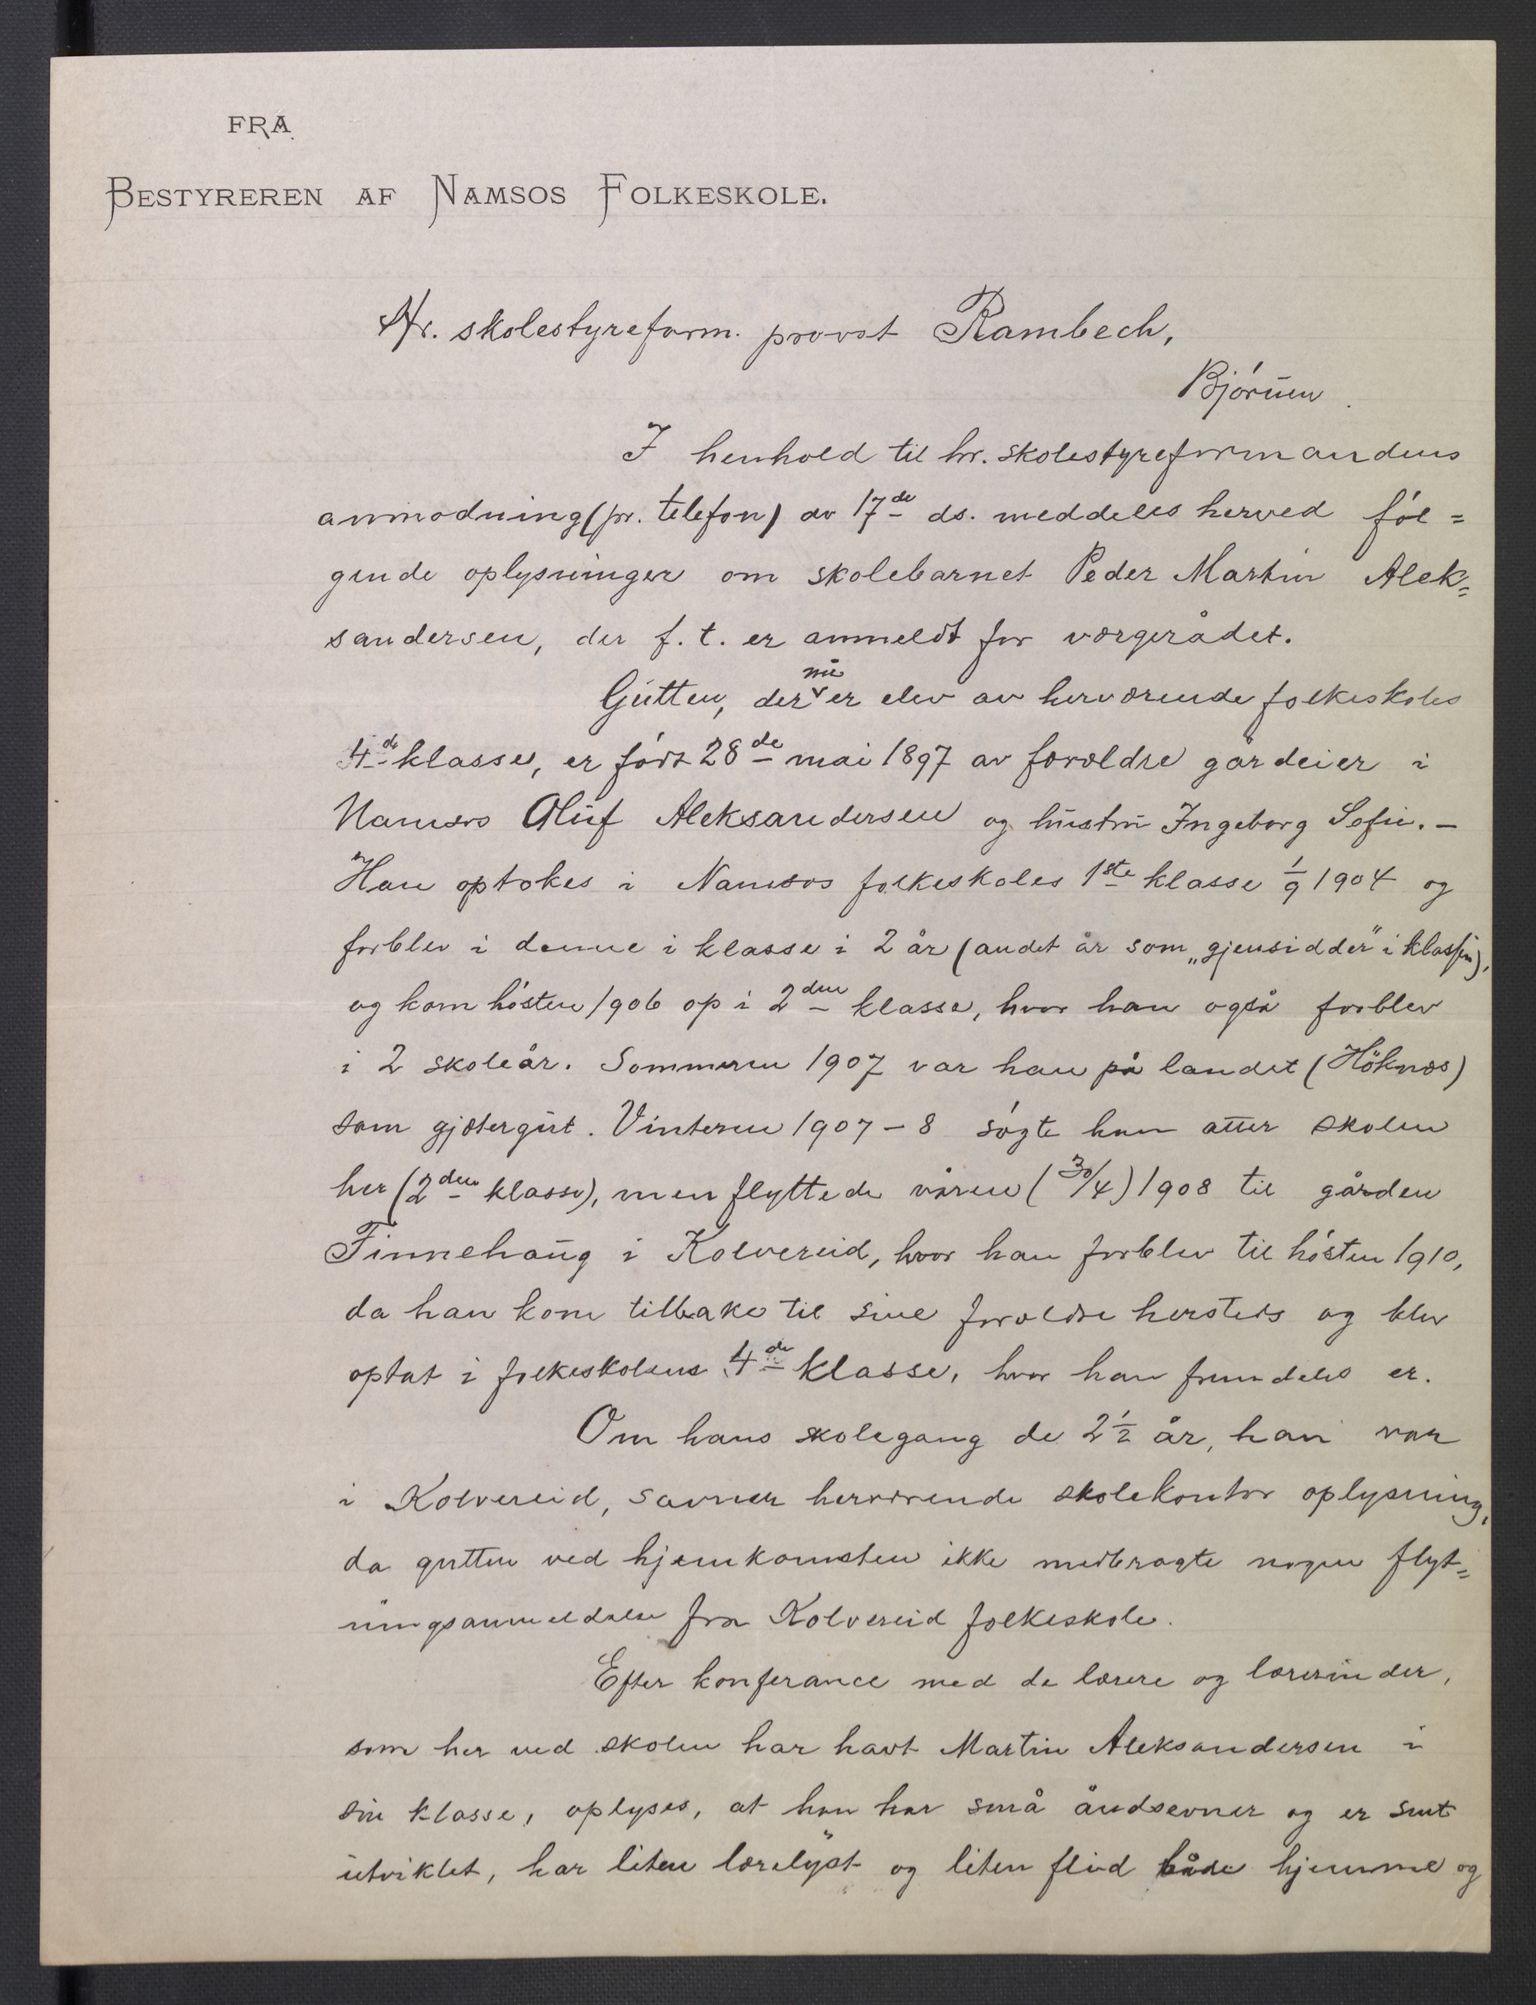 FRA
BESTYREREN AF NAMSOS FOLKESKOLE.
Hr. skolestyreform. provst Rambech,
Bjórúm
I henhold til hr. skolestyreformandens
anmodning (pr. telefon) av 17de ds. meddeles herved föl=
gende oplysninger om skolebarnet Peder Martin Alek=
sandersen, der f. t. er anmeldt for værgerådet.
Gutten, der nú er elev av herværende folkeskoles
4de klasse, er født 28de mai 1897 av forældre gårdeier i
Namsos Oluf Aleksandersen og hustru Ingeborg Sofie. –
Han optokes i Namsos folkeskoles 1ste klasse 1/9 1904 og
forblev i denne i klasse i 2 år (andet år som „gjensidder“ i klassen),
og kom hösten 1906 op i 2den klasse, hvor han også forblev
i 2 skoleår. Sommeren 1907 var han på landet (Höknes)
som gjætergut. Vinteren 1907 – 8 søgte han atter skolen
her (2den klasse), men flyttede våren (30/4) 1908 til gården
Finnehaug i Kolvereid, hvor han forblev til hösten 1910,
da han kom tilbake til sine forældre hersteds og blev
optat i folkeskolens 4de klasse, hvor han fremdeles er.
Om hans skolegang de 2 1/2 år, han var
i Kolvereid, savner herværende skolekontor oplysning,
da gutten ved hjemkomsten ikke medbragte nogen flyt=
ningsanmeldelse fra Kolvereid folkeskole.
Efter konferance med de lærere og lærerinder,
som her ved skolen har havt Martin Aleksandersen i
sin klasse, oplyses, at han har små åndsevner og er sent
utviklet, har liten lærelyst og liten flid både hjemme og